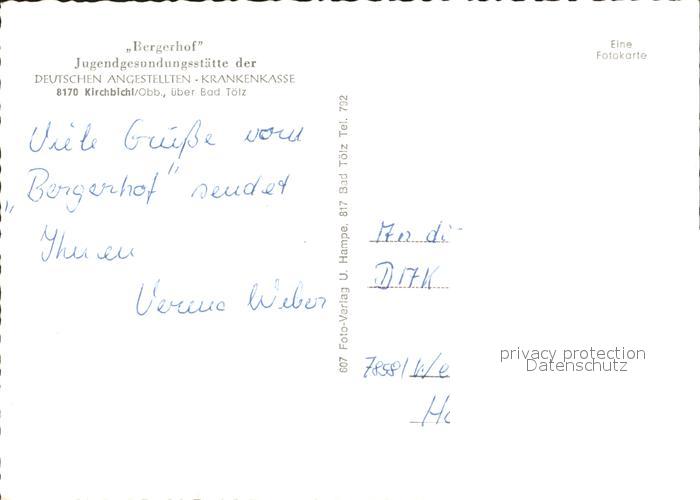 „Bergerhof"
Jugendgesundungsstätte der
DEUTSCHEN ANGESTELLTEN - KRANKENKASSE
8170 Kirchbichl/Obb., über Bad Tölz
Viele Grüße vom
„Bergerhof" sendet
Ihnen
Verena Weber
607 Foto-Verlag U. Hampe, 817 Bad Tölz Tel. 792
Eine
Fotokarte
An di
DAK
We
Ha
privacy protection
Datenschutz